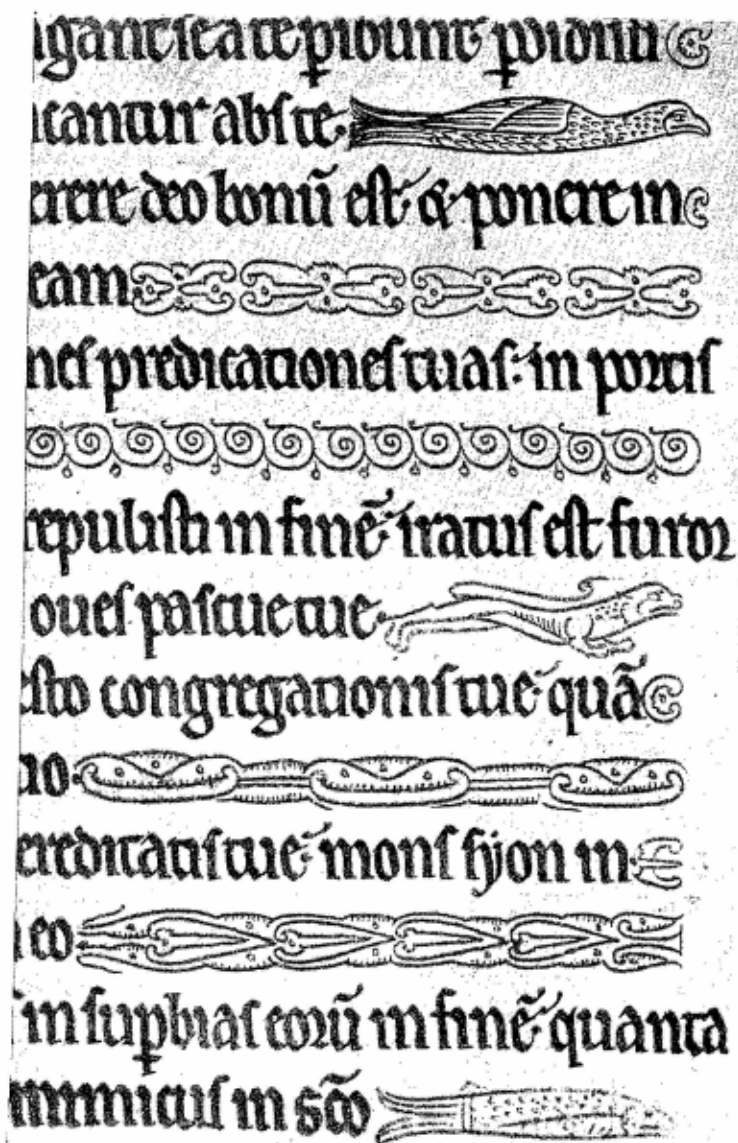 gant se a te ꝑibunt ꝑdidisti
icantur abs te.
erere deo bonū est & ponere in
eam.
nes predicationes tuas: in portis
repulisti in finē iratus est furor
oues pascue tue.
esto congregationis tue quā
tio.
ereditatis tue mons syon in
eo
in suꝑbias eorū in finē quanta
inimicus in scō